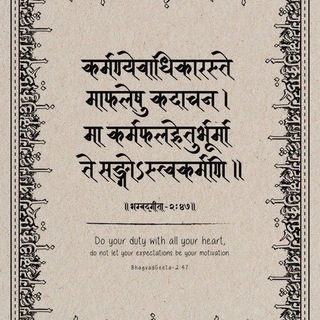 कर्मण्येवाधिकारस्ते
माफलेषु कदाचन ।
मा कर्मफलहेतुर्भूर्मा
ते सङ्गोऽस्त्वकर्मणि ॥
॥ भगवद्गीता - २:४७ ॥
Do your duty with all your heart,
do not let your expectations be your motivation.
BhagvadGeeta-2 47